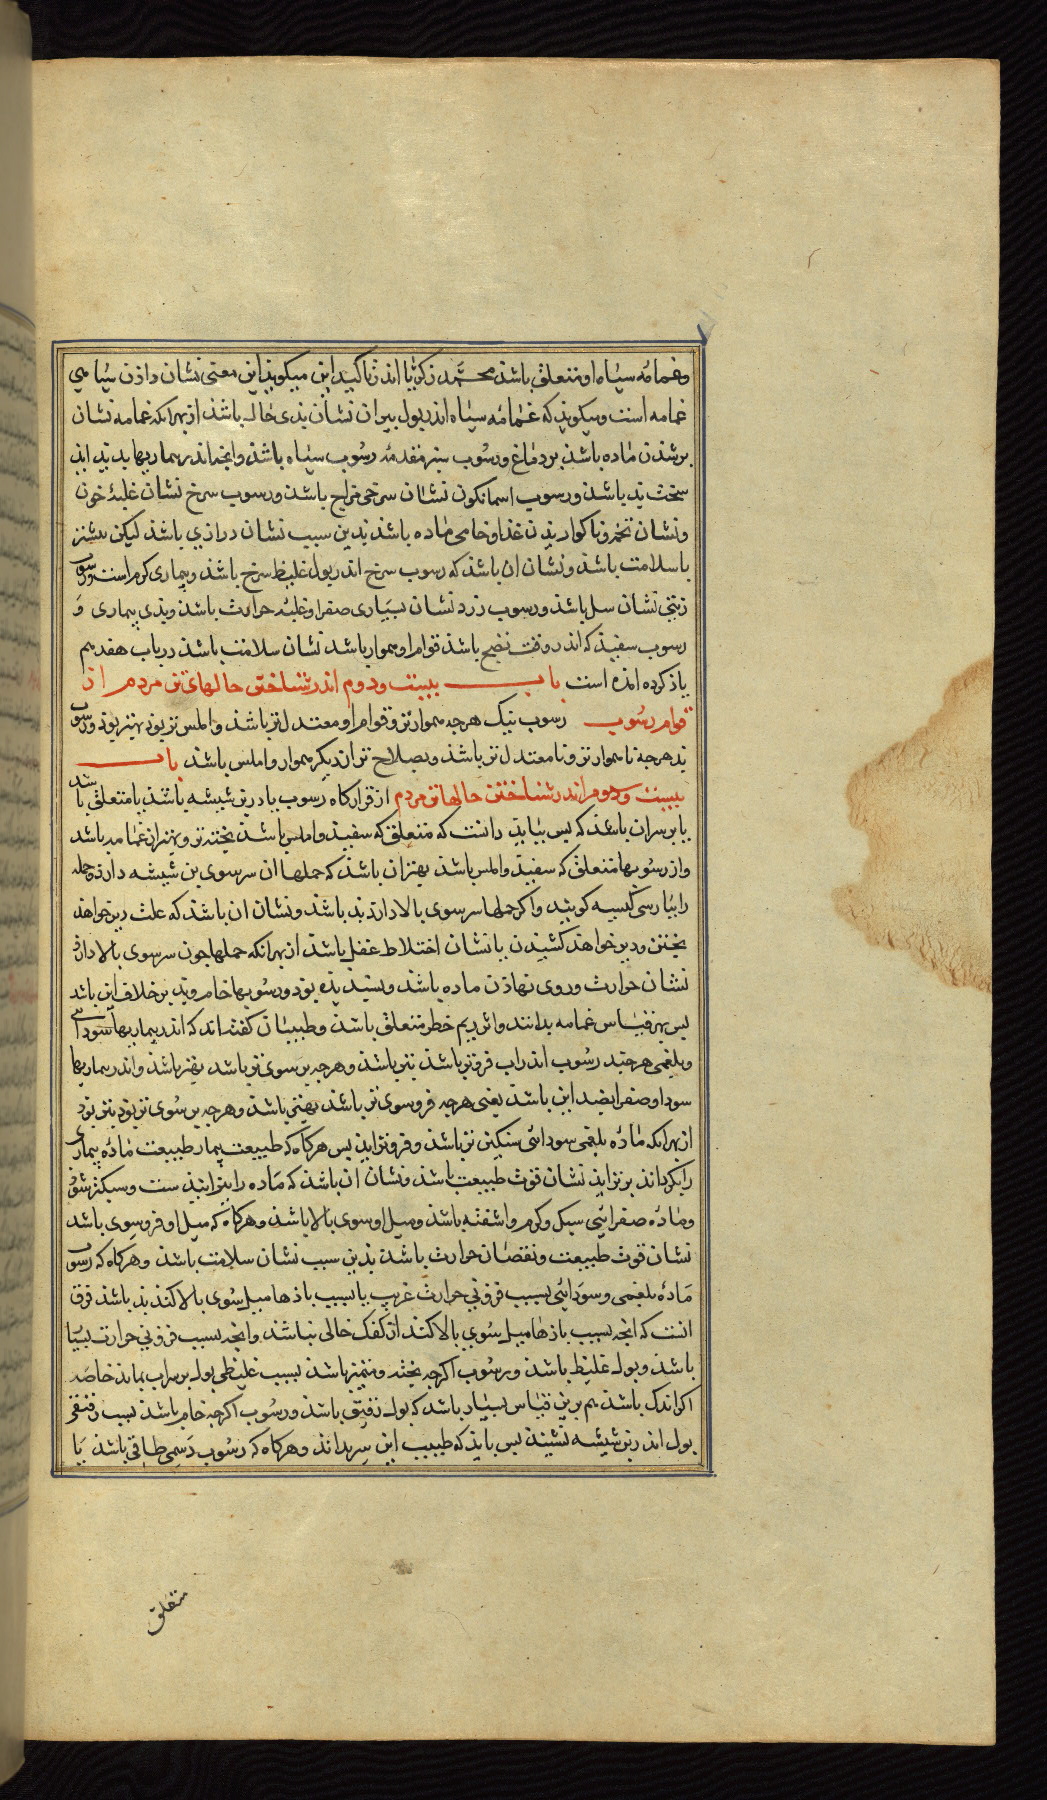 و غمامه سیاه او متعلق باشذ محمد زکریا اندر تاکید این میکویذ این معنی نشان داذن سیاهی
غمامه است و میکویذ که غمامه سیاه اندر بول پیران نشان بذی حال باشذ از بهر انکه غمامه نشان
برشدن ماده باشذ بر دماغ و رسوب سبز مقدمه رسوب سیاه باشذ و انجه اندر بیماریها بد پدید اید
سخت بد باشذ و رسوب اسمانکون نشان سردی مزاج باشذ و رسوب سرخ نشان غلبهٔ خون
و نشان تخمه و ناکواریذن غذا و خامی ماده باشذ بذین سبب نشان درازی باشذ لیکن بیشتر
با سلامت باشذ و نشان ان باشذ که رسوب سرخ اندر بول غلیظ سرخ باشذ و بیماری کرم است و رسوب
زیتی نشان سل باشذ و رسوب زرد نشان بسیاری صفرا و غلبه حرارت باشذ و بذی بیماری و
رسوب سفیذ که اندر وقت نضج باشذ قوام او هموار باشذ نشان سلامت باشذ در باب هفدهم
یاذ کرده امذه است باب بیست و دوم اندر شناختن حالهای تن مردم از
قوام رسوب رسوب نیک هرجه هموارتر و قوام او معتدل تر باشذ و املس تر بوذ بهتر بوذ و رسوب
بذ هرجه ناهموارتر و نامعتدل تر باشذ و بصلاح تر از دیکر هموار و املس باشذ باب
بیست و دوم اندر شناختن حالها تن مردم از قرارکاه رسوب یا در بن شیشه باشذ یا متعلق باشد
یا بر سر ان باشذ که پس بیایذ دانست که متعلق که سفیذ و املس باشذ پخته تر و بهتر از غمامه باشد
و از رسوبها متعلق که سفیذ و املس باشذ بهتر ان باشذ که حملها ان سر سوی بن شیشه دارد و حمله
را بپارسی کیسه کویند و اکر حملها سر سوی بالا دارد بد باشذ و نشان ان باشذ که علت دیر خواهذ
پختن و دیر خواهذ کشیدن یا نشان اختلاط عقل باشذ از بهر انکه حملها جون سر سوی بالا دارذ
نشان حرارت و روی نهاذن ماده باشذ و رسوبها خام و بذ بر خلاف این باشد
پس بهر قیاس غمامه بدانند و اثر نیم خطر متعلق باشذ و طبیبان کفته اند که اندر بیماریها سودایی
و بلغمی هر جند رسوب اندر اب فروتر باشذ بتر باشذ و هرجه بر سوی تر باشد بهتر باشذ و اندر بیماریها
سودا و صفرا بضد این باشذ یعنی هرجه فروسوی تر باشذ بهتر باشذ و هرجه بر سوی تر بوذ بتر بوذ
از بهر انکه مادهٔ بلغمی سودائی سنکین تر باشذ و فروتر ایذ پس هرکاه که طبیعت بیمار طبیعت مادهٔ بیماری
را بکرداند برتر ایذ نشان قوت طبیعت باشذ و نشان ان باشذ که ماده را بتر انیذ ست و سبکتر شود
و مادهٔ صفرائی سبک و کرم و اشفته باشذ و میل او سوی بالا باشذ و هرکاه که میل او فروسوی باشد
نشان قوت طبیعت و نقصان حرارت باشذ بذین سبب نشان سلامت باشذ و هرکاه که رسوب
مادهٔ بلغمی و سودائی بسبب فزونی حرارت غریب یا بسبب باذها میل سوی بالا کند بذ باشذ فرق
انست که انجه بسبب باذها میل سوی بالا کند از کفک خالی نباشذ و انجه بسبب فزونی حرارت بسیار
باشذ و بول غلیظ باشذ و رسوب اکرجه پخته و متمیز باشذ بسبب غلیظی بول بر سر اب بماند خاصه
اکر اندک باشذ هم برین قیاس بسیار باشذ که بول رقیق باشذ و رسوب اکرجه خام باشذ بسبب رقیقی
بول اندر بن شیشه نشیند پس بایذ که طبیب این سر بداند و هرکاه که رسوب دسمی طافی باشذ یا
متعلق